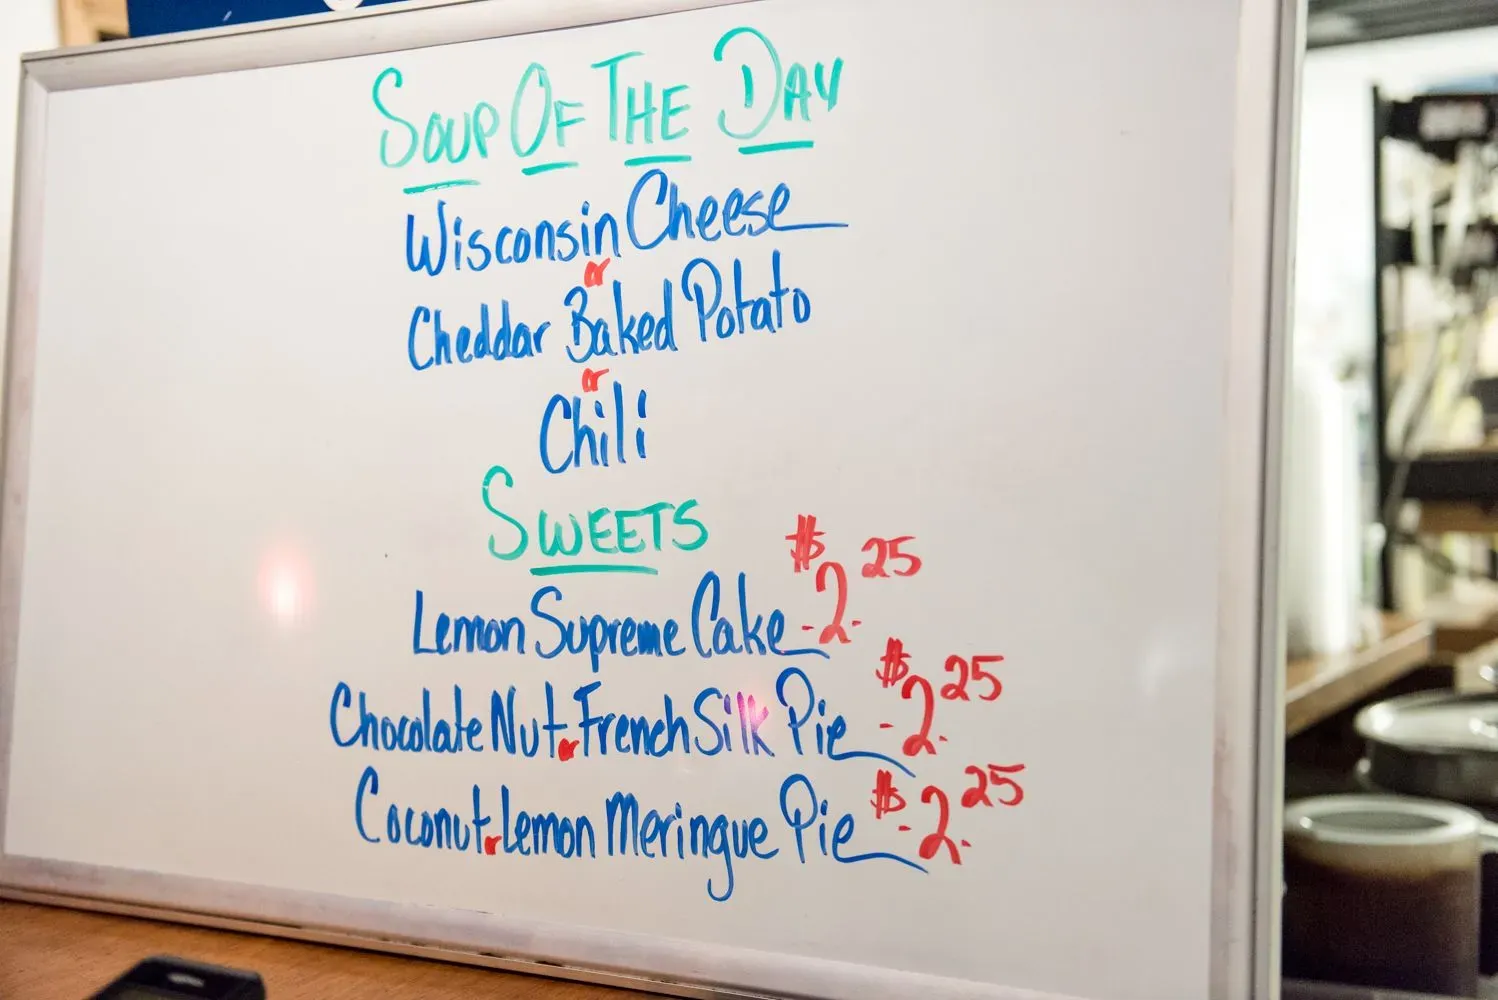 Soup Of The Day
Wisconsin Cheese
or
Cheddar Baked Potato
or
Chili
Sweets
Lemon Supreme Cake $2.25
Chocolate Nut or French Silk Pie $2.25
Coconut or Lemon Meringue Pie $2.25